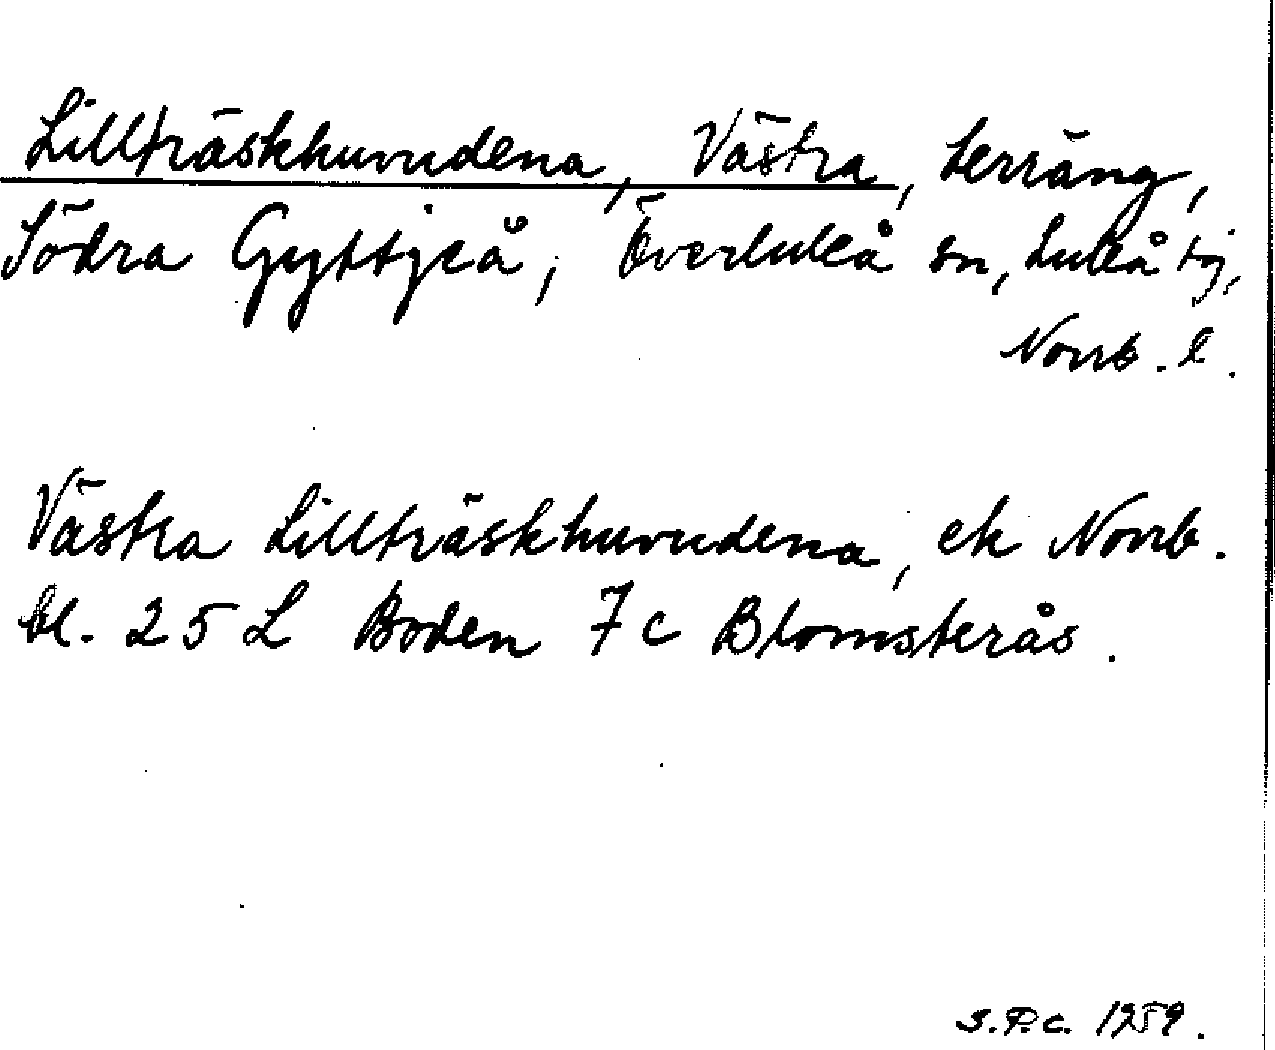 Lillträskhuvudena, Västra, terräng,
Södra Gyttjeå, Överluleå sn, Luleå tg,
Norrb. l.
Västra Lillträskhuvudena, ek Norrb.
bl. 25 L Boden 7 c Blomsterås.
S.P.C. 1959.